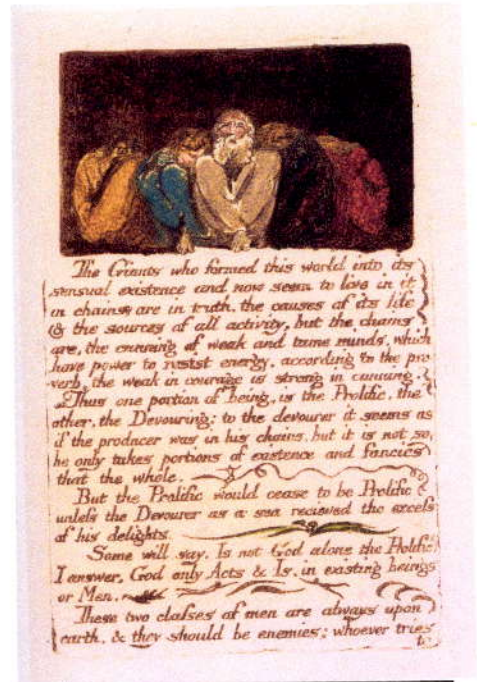 The Giants who formed this world into its
sensual existence and now seem to live in it
in chains, are in truth, the causes of its life
& the sources of all activity, but the chains
are, the cunning of weak and tame minds, which
have power to resist energy, according to the pro
verb, the weak in courage is strong in cunning.
Thus one portion of being, is the Prolific, the
other, the Devouring: to the devourer it seems as
if the producer was in his chains, but it is not so,
he only takes portions of existence and fancies
that the whole.
But the Prolific would cease to be Prolific
unless the Devourer as a sea recieved the excess
of his delights.
Some will say, Is not God alone the Prolific
I answer, God only Acts & Is, in existing beings
or Men.
These two classes of men are always upon
earth, & they should be enemies; whoever tries
to